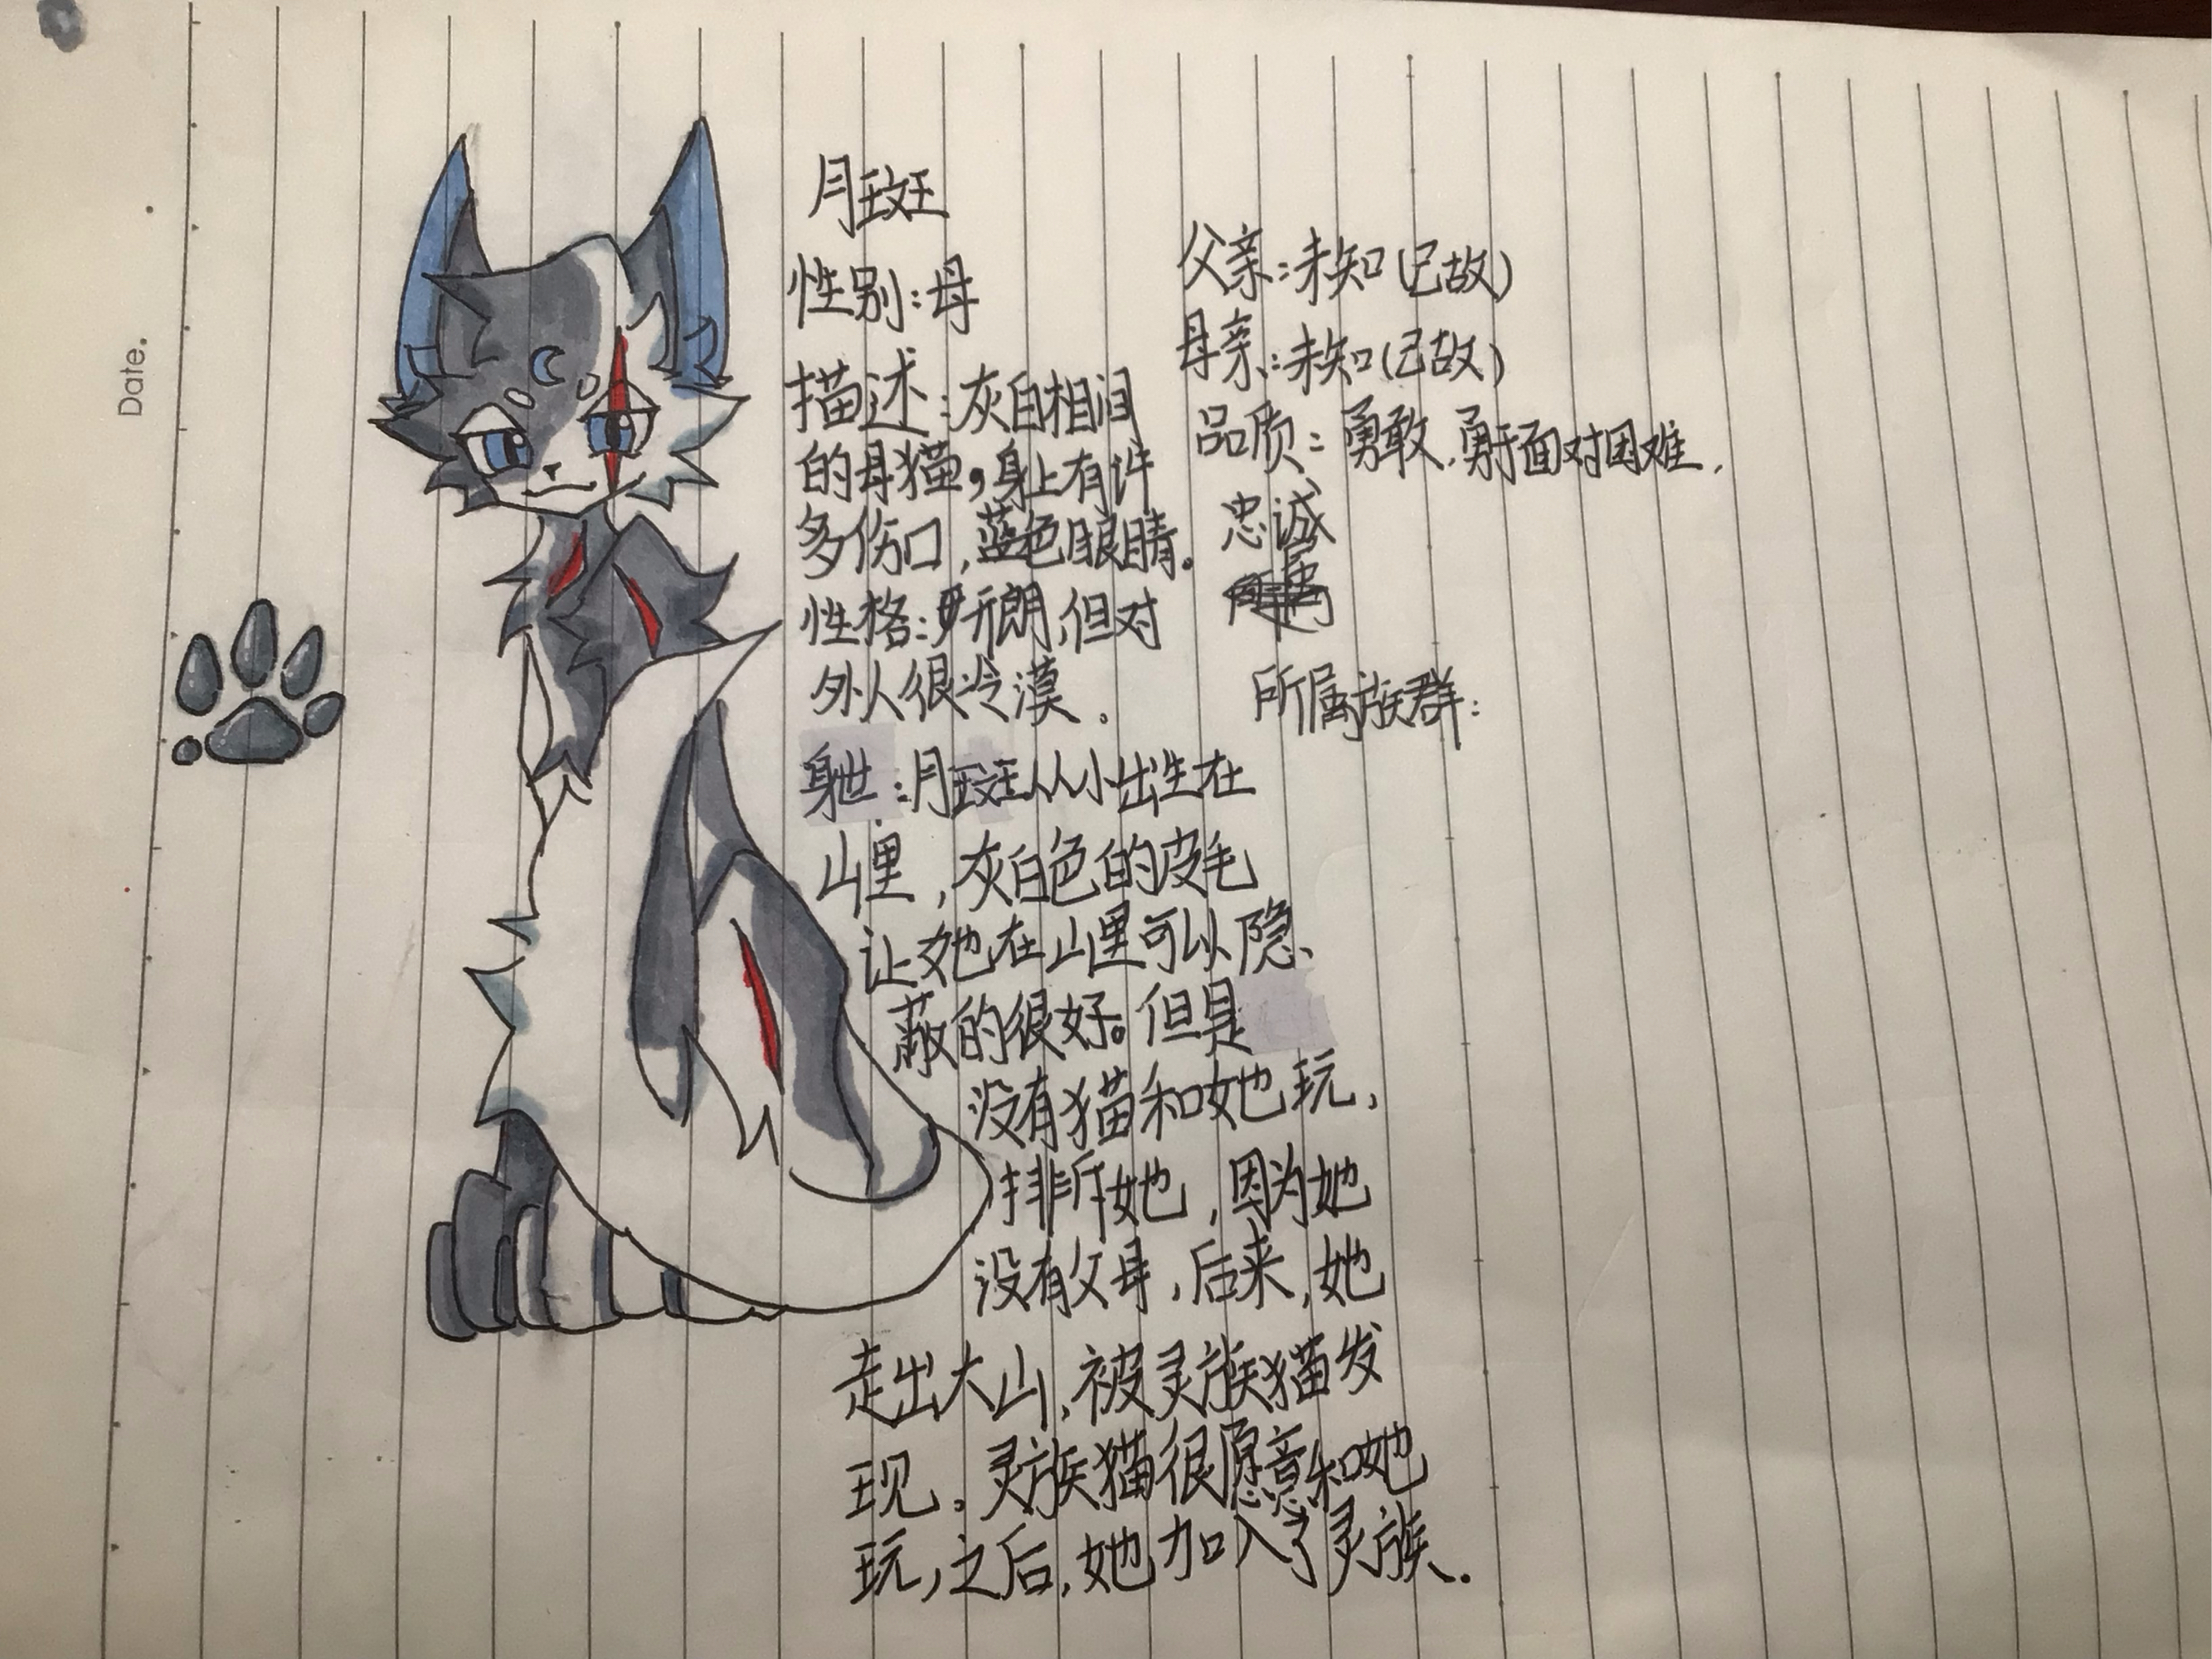 Date.
月斑
性别：母
描述：灰白相间
的母猫，身上有许
多伤口，蓝色眼睛。
性格：开朗，但对
外人很冷漠．
身世：月斑从小出生在
山里，灰白色的皮毛
让她在山里可以隐、
蔽的很好。但是
没有猫和她玩，
排斥她，因为她
没有父母，后来，她
走出大山，被灵族猫发
现。灵族猫很愿意和她
玩，之后，她加入了灵族．
父亲：未知（已故）
母亲：未知（已故）
品质：勇敢，勇于面对困难，
忠诚
所属族群：